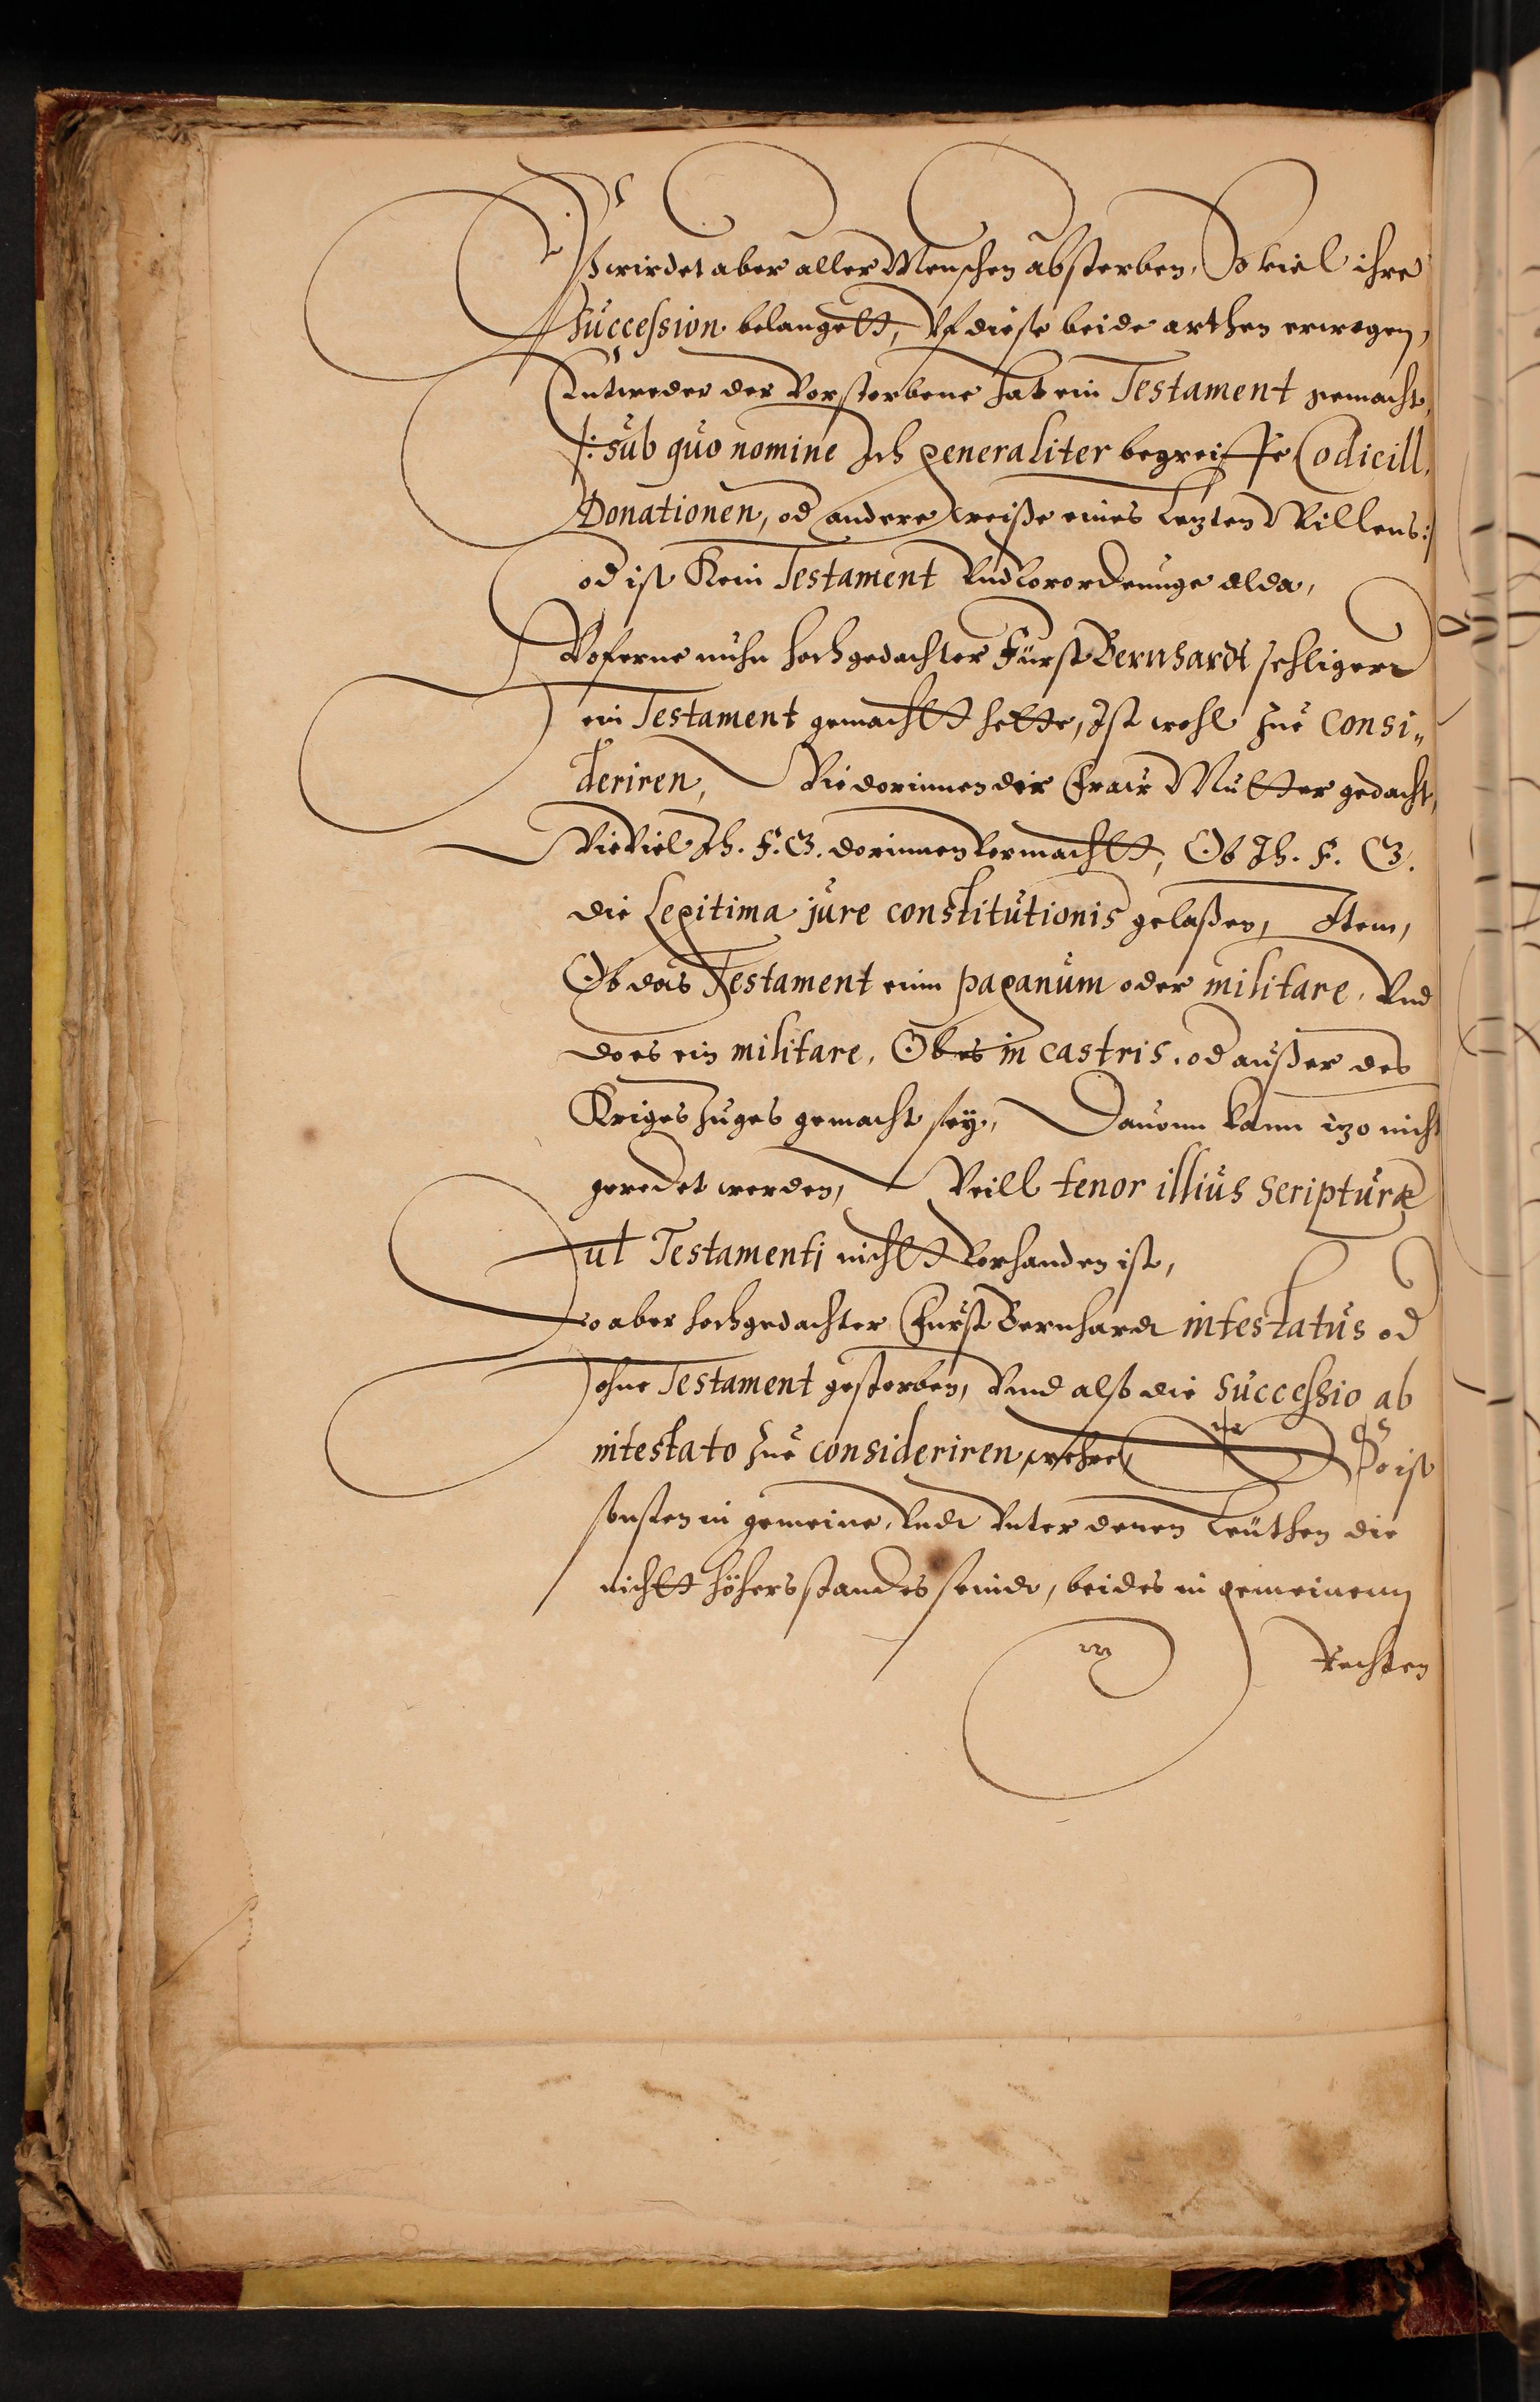 Es wirdet aber aller Menschen absterben, So viel ihre
Succession belangett, Vf diese beide arthen erwogen,
Entweder der Vorstorbene hat ein Testament gemacht,
/: sub quo nomine Ich generaliter begreiffe Codicill,
Donationen, od andere weiße eines Lezten Willens :/
od ist Kein Testament Vnd Vorordenunge alda,
Woferne nuhn hochgedachter Fürst Bernhardt sehliger
ein Testament gemachtt hette, Ist wohl zue consi„
deriren, Wie dorinnen der Fraw Mutter gedacht,
Wie Viel Ih. F. G. dorinnen Vormachtt, Ob Ih. F. G.
die Legitima jure constitutionis gelaßen, Item,
Ob das Testament ein paganum oder militare, Vnd
do es ein militare, Ob es in castris, od außer des
Kriges Zuges gemacht sey, Dauonn kann izo nicht
geredet werden, Weill tenor illius scripturæ
ut Testamenti nichtt Vorhanden ist,
Do aber hochgedachter Fürst Bernhardt intestatus od
ohne Testament gestorben, Vnnd alß die successio ab
intestato zue consideriren wehre, So ist
sonsten in gemeine, Vndt Vnter denen Leüthen die
nichtt höhers standes seindt, beides in gemeinenn
Rechten